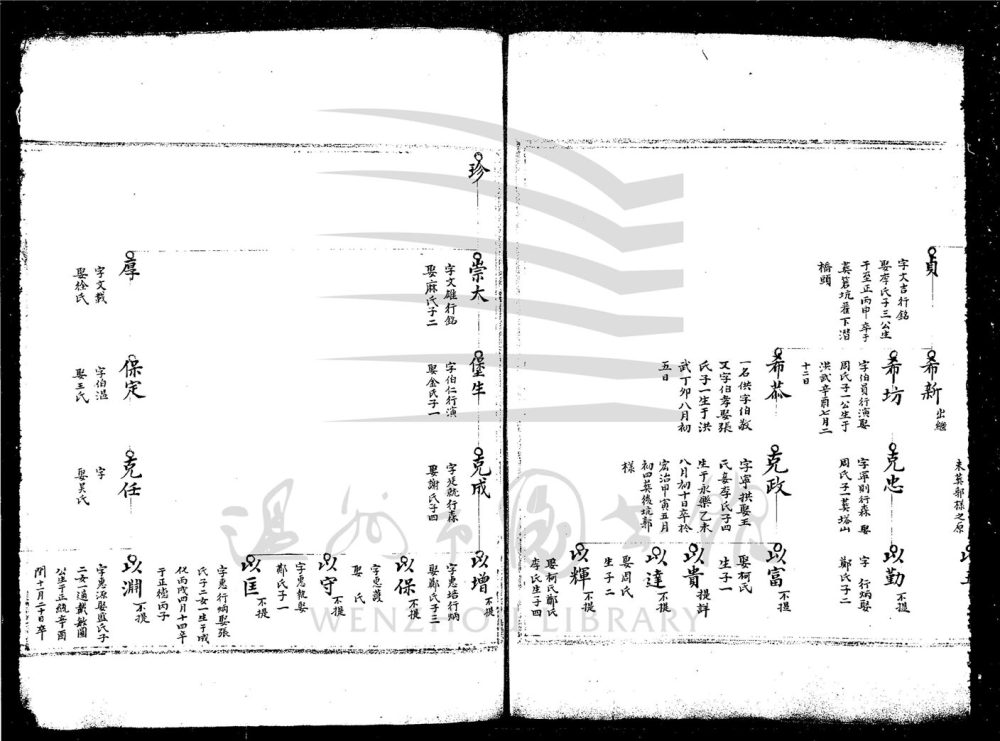 貞
字文吉行銘
娶李氏子三公生
于至正丙申卒于
橋頭
希新
出繼
希坊
字伯員行演娶
周氏子一公生于
洪武辛酉七月二
十二日
希恭
一名供字伯敬
又字伯孝娶張
氏子一生于洪
武丁卯八月初
五日
未葬郭樣之原
克忠
字寧則行森娶
周氏子一葬塔山
克政
字寧拱娶王
氏妾李氏子四
生于永樂乙未
八月初十日卒於
宏治甲寅五月
初四葬後坑郭
樣
以勤
不提
字 行炳娶
鄭氏子二
以富
不提
娶柯氏
生子一
以貴
提詳
以達
不提
娶周氏
生子二
以輝
不提
娶柯氏鄭氏
李氏生子四
珍
崇大
字文雄行銘
娶麻氏子二
厚
字文載
娶徐氏
堡生
字伯仁行演
娶金氏子一
保定
字伯溫
娶王氏
克成
字廷就行森
娶謝氏子四
克任
字
娶吳氏
以增
不提
字惠培行炳
娶鄭氏子三
以保
不提
字惠葭
娶 氏
以守
不提
字惠執娶
鄭氏子一
以匡
不提
字惠行炳娶張
氏子二女一生于成
化丙戌四月十四卒
于正德丙子
以淵
不提
字惠源娶藍氏子
公生于正統辛酉
閏十一月二十日卒
溫州市圖書館
WENZHOU LIBRARY